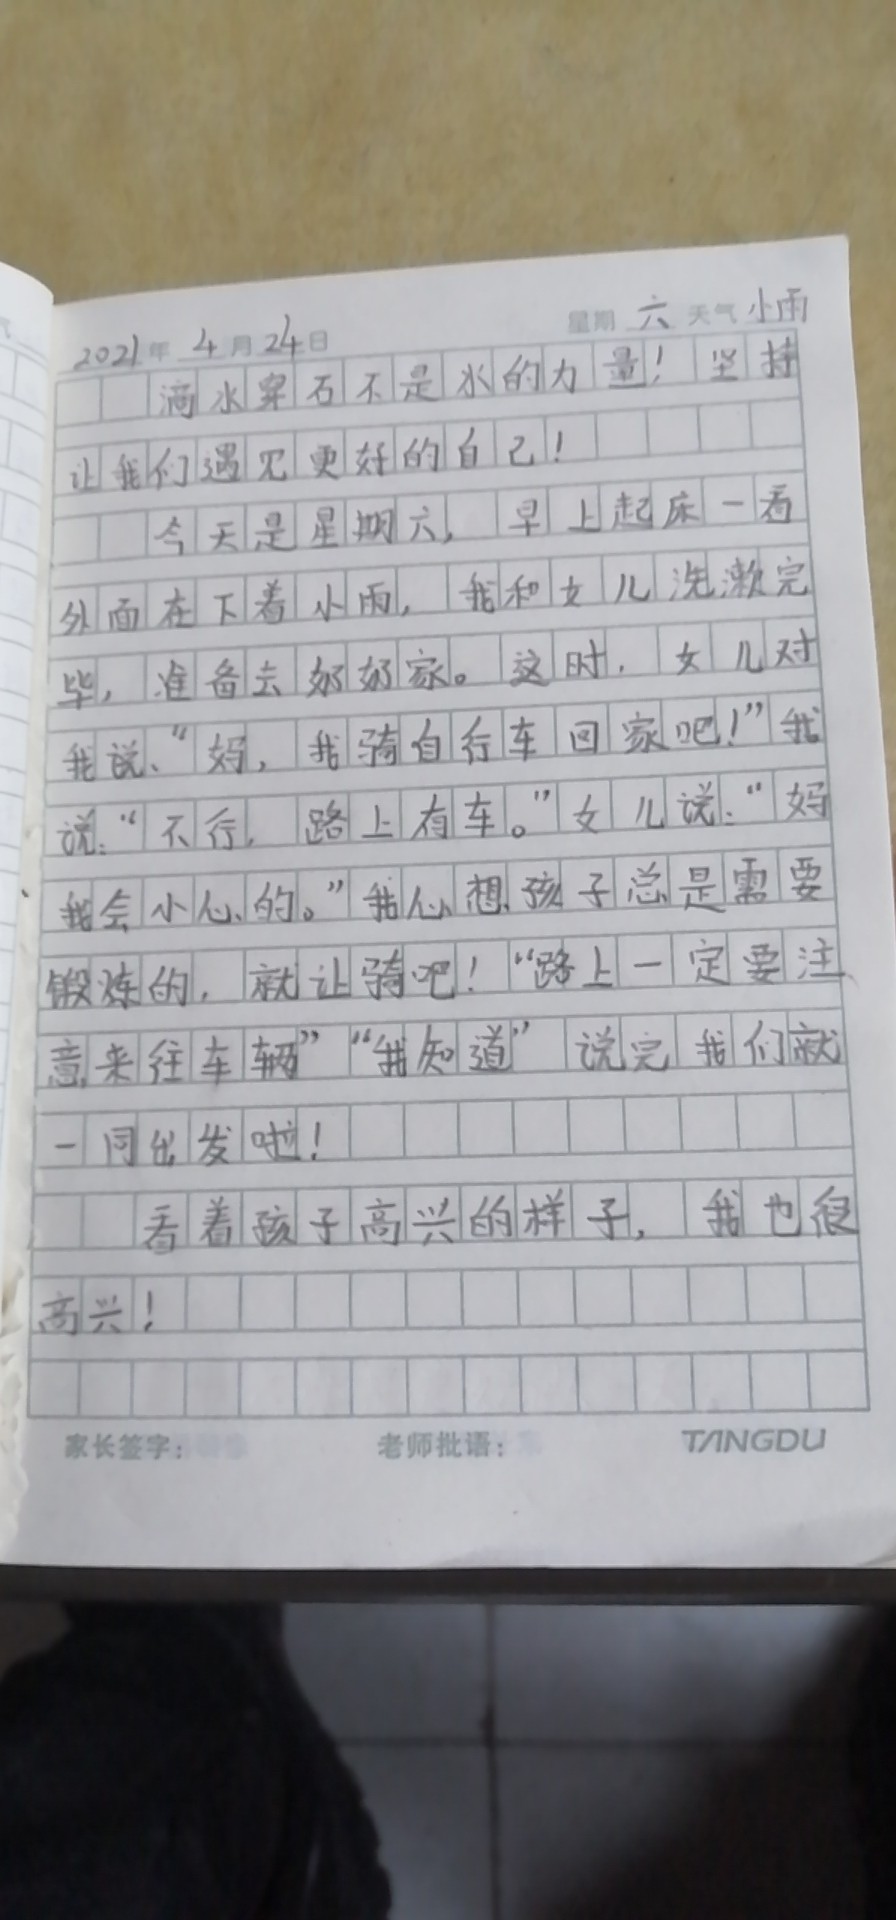 2021年 4月 24日 星期 六 天气 小雨
滴水穿石不是水的力量！坚持
让我们遇见更好的自己！
今天是星期六，早上起床一看
外面在下着小雨，我和女儿洗漱完
毕，准备去奶奶家。这时，女儿对
我说、“妈，我骑自行车回家吧！”我
说：“不行，路上有车。”女儿说：“妈
我会小心的。”我心想，孩子总是需要
锻炼的，就让骑吧！“路上一定要注
意来往车辆”“我知道”说完我们就
一同出发啦！
看着孩子高兴的样子，我也很
高兴！
家长签字： 老师批语： TANGDU